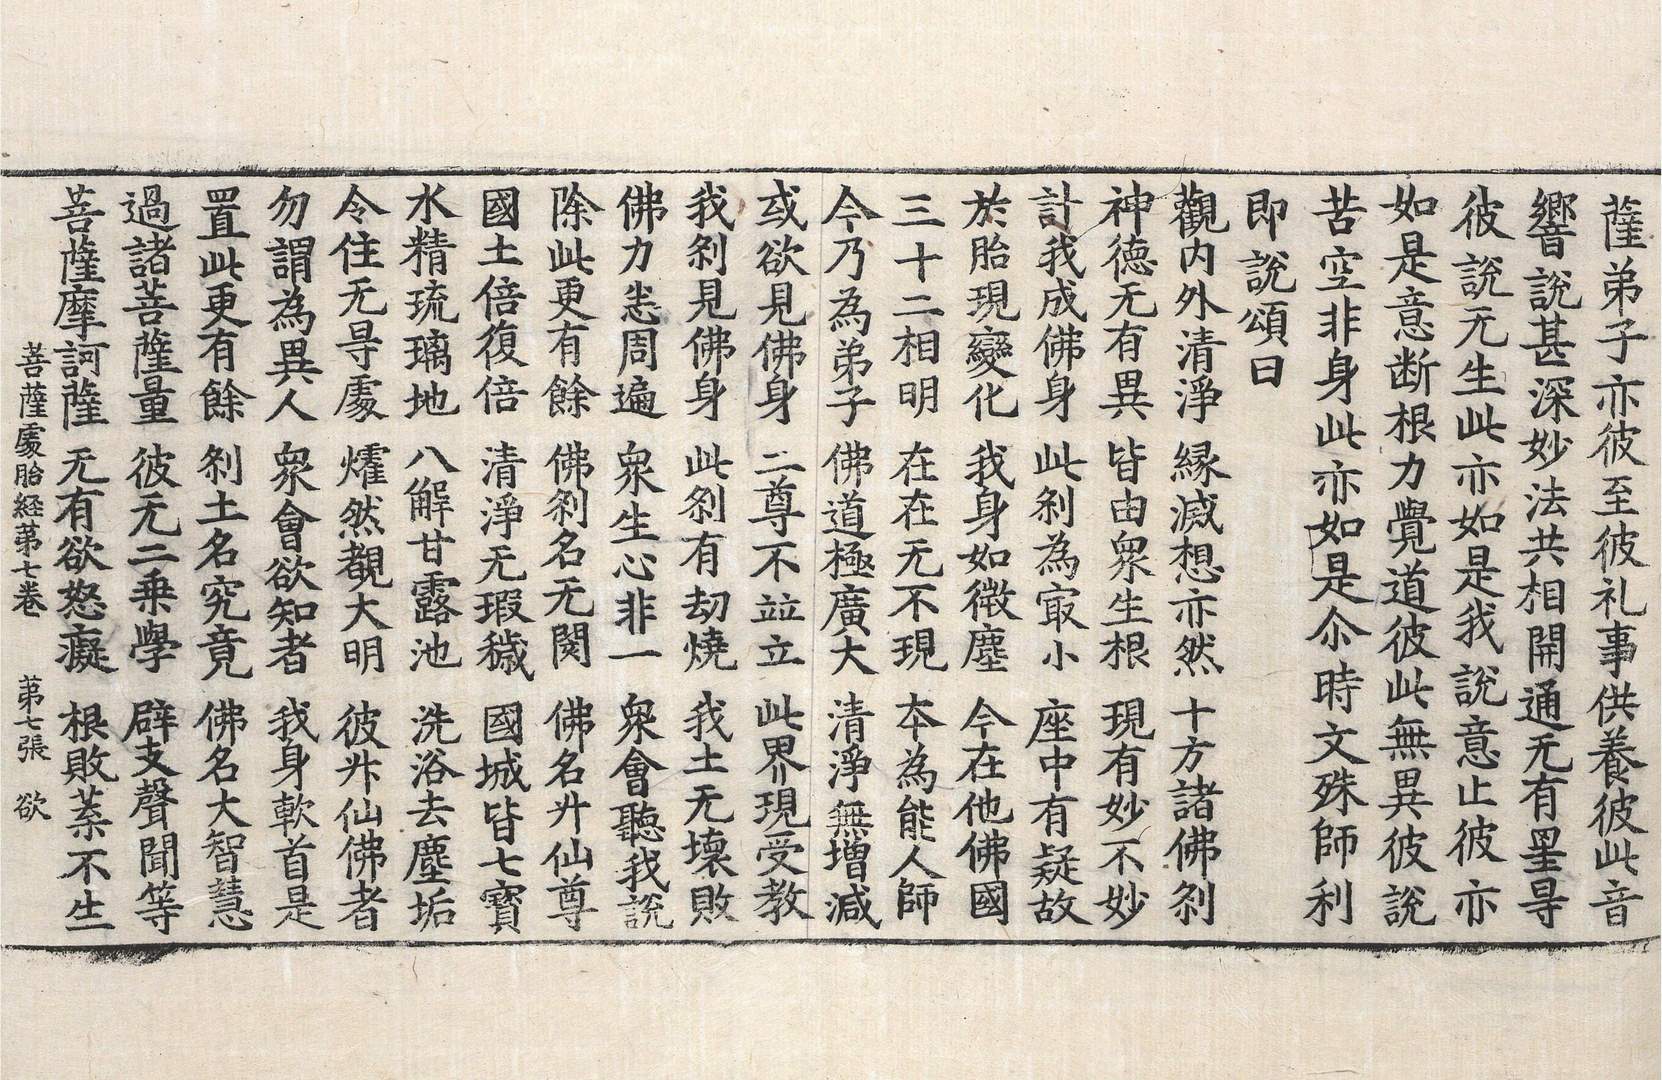 薩弟子亦彼至彼礼事供養彼此音
響說甚深妙法共相開通无有罣㝵
彼說无生此亦如是我說意止彼亦
如是意断根力覺道彼此無異彼說
苦空非身此亦如是尒時文殊師利
即說頌曰
觀内外清淨 緣滅想亦然 十方諸佛刹
神德无有異 皆由衆生根 現有妙不妙
計我成佛身 此刹為㝡小 座中有疑故
於胎現變化 我身如微塵 今在他佛國
三十二相明 在在无不現 夲為能人師
今乃為弟子 佛道極廣大 清淨無增減
或欲見佛身 二尊不竝立 此界現受教
我刹見佛身 此刹有劫燒 我土无壞敗
佛力悉周遍 衆生心非一 衆會聽我說
除此更有餘 佛刹名无閡 佛名升仙尊
國土倍復倍 清淨无瑕穢 國城皆七寶
水精琉璃地 八解甘露池 洗浴去塵垢
令住无㝵處 燿然覩大明 彼升仙佛者
勿謂為異人 衆會欲知者 我身軟首是
置此更有餘 刹土名究竟 佛名大智慧
過諸菩薩量 彼无二乗學 辟支聲聞等
菩薩摩訶薩 无有欲怒癡 根敗菓不生
菩薩處胎経苐七卷 苐七張 欲